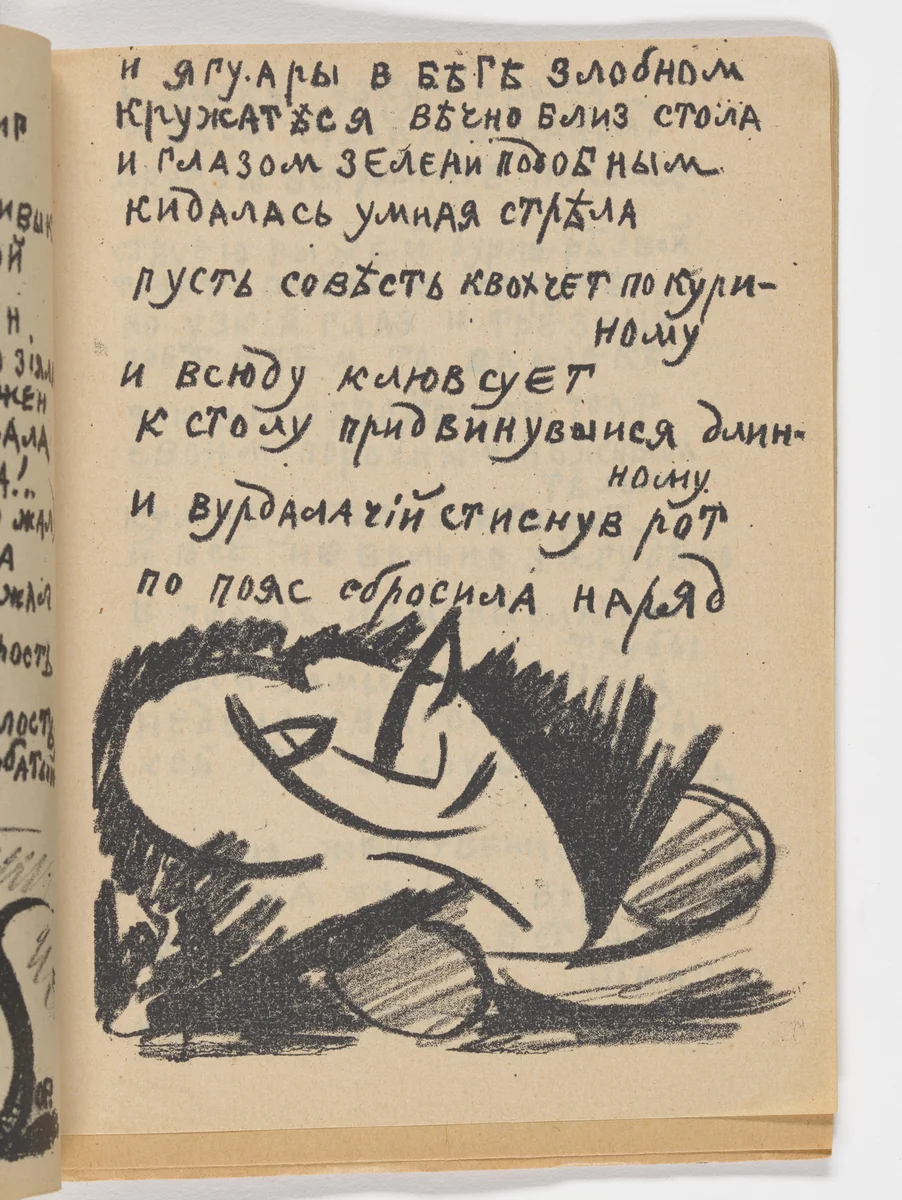 и ягу.ары в бѣгѣ злобном
кружатѣся вѣчно близ стола
и глазом зелени подобным
кидалась умная стрѣла
пусть совѣсть квохчет по кури-
ному
и всюду клюв сует
к столу придвинувшися длин-
ному
и вурдалачій стиснув рот
по пояс сбросила наряд